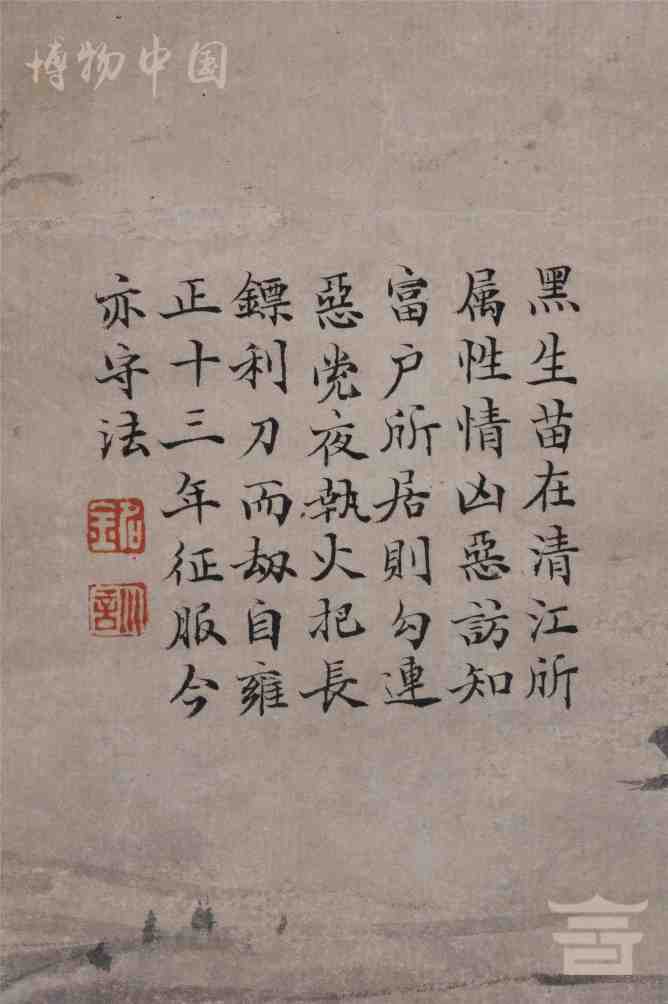 博物中国
黑生苗在清江所
属性情凶惡訪知
富户所居則勾連
惡党夜執火把長
鏢利刀而刼自雍
正十三年征服今
亦守法